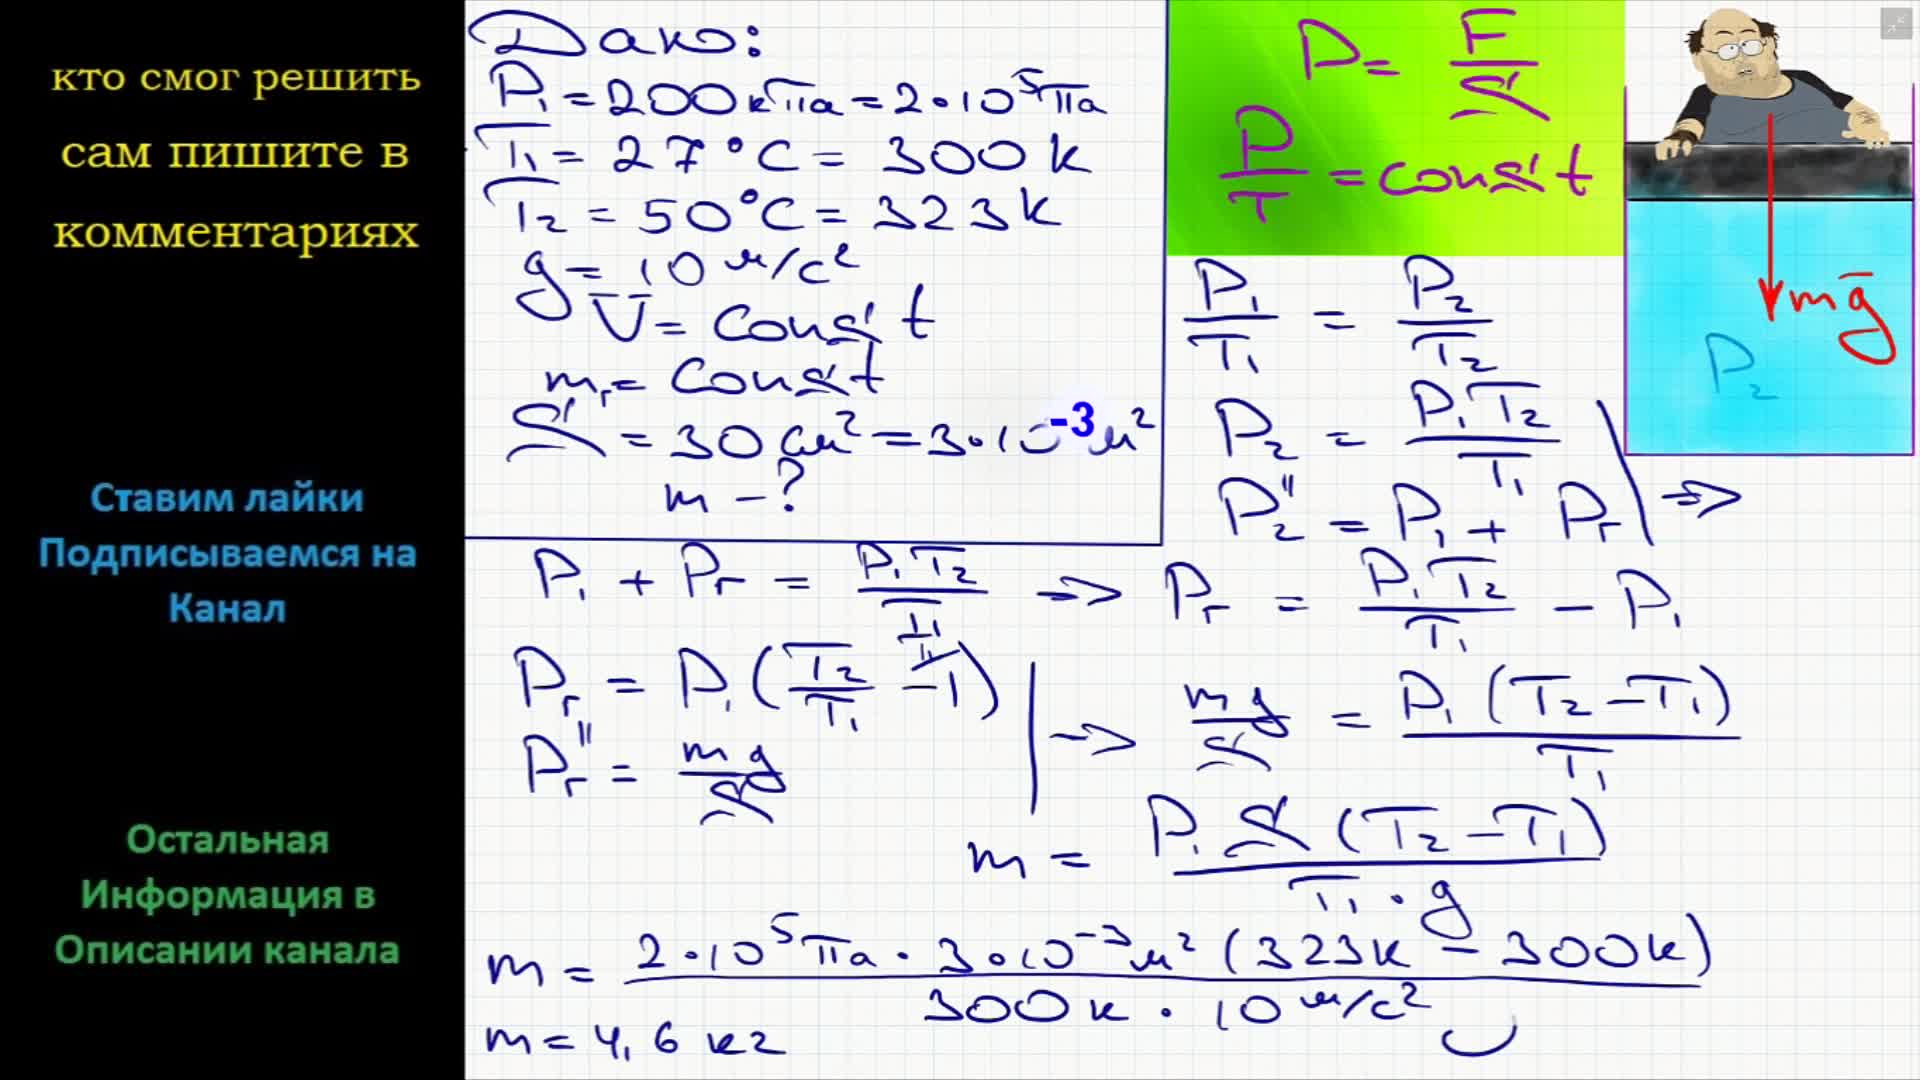 кто смог решить
сам пишите в
комментариях
Ставим лайки
Подписываемся на
Канал
Остальная
Информация в
Описании канала
Дано:
P₁ = 200 кПа = 2·10⁵ Па
T₁ = 27°C = 300 К
T₂ = 50°C = 323 К
g = 10 м/с²
V = const
mг = const
S = 30 см² = 3·10⁻³ м²
m – ?
P = F/S
P/T = const
mg
P₂
P₁/T₁ = P₂/T₂
P₂ = P₁T₂/T₁
P₂" = P₁ + Pг | =>
P₁ + Pг = P₁T₂/T₁ => Pг = P₁T₂/T₁ – P₁
Pг = P₁(T₂/T₁ – 1)
Pг" = mg/S | => mg/S = P₁(T₂ – T₁)/T₁
m = P₁S(T₂ – T₁)/T₁·g
m = 2·10⁵ Па · 3·10⁻³ м² (323 К – 300 К)/300 К · 10 м/с²
m = 4,6 кг